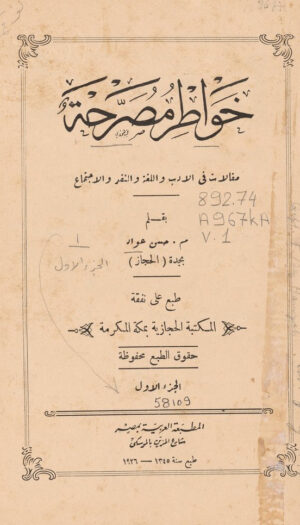 خواطر مصرحة
مقالات فى الادب واللغة والنقد والاجتماع
892.74
A967kA
V.1
بقلم
م. حسن عواد
بجدة (الحجاز)
١
الجزء الاول
طبع على نفقة
المكتبة الحجازية بمكة المكرمة
حقوق الطبع محفوظة
الجزء الاول
58109
المطبعة العربية بمصر
شارع المزين بالموسكى
طبع سنة ١٣٤٥ — ١٩٢٦